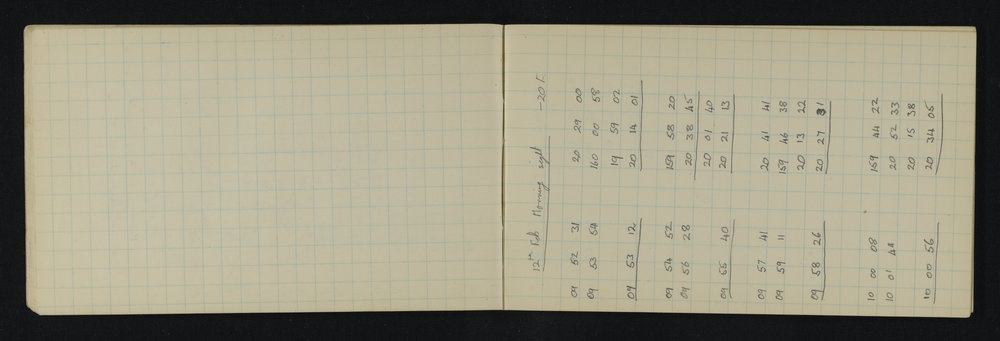 12th Feb Morning sight -20 F.
09 52 31 20 29 00
09 53 54 160 00 58
19 59 02
09 53 12 20 14 01
09 54 52 159 58 20
09 56 28 20 38 45
20 01 40
09 55 40 20 21 13
09 57 41 20 41 41
09 59 11 159 46 38
20 13 22
09 58 26 20 27 31
10 00 08 159 44 22
10 01 44 20 52 33
20 15 38
10 00 56 20 34 05